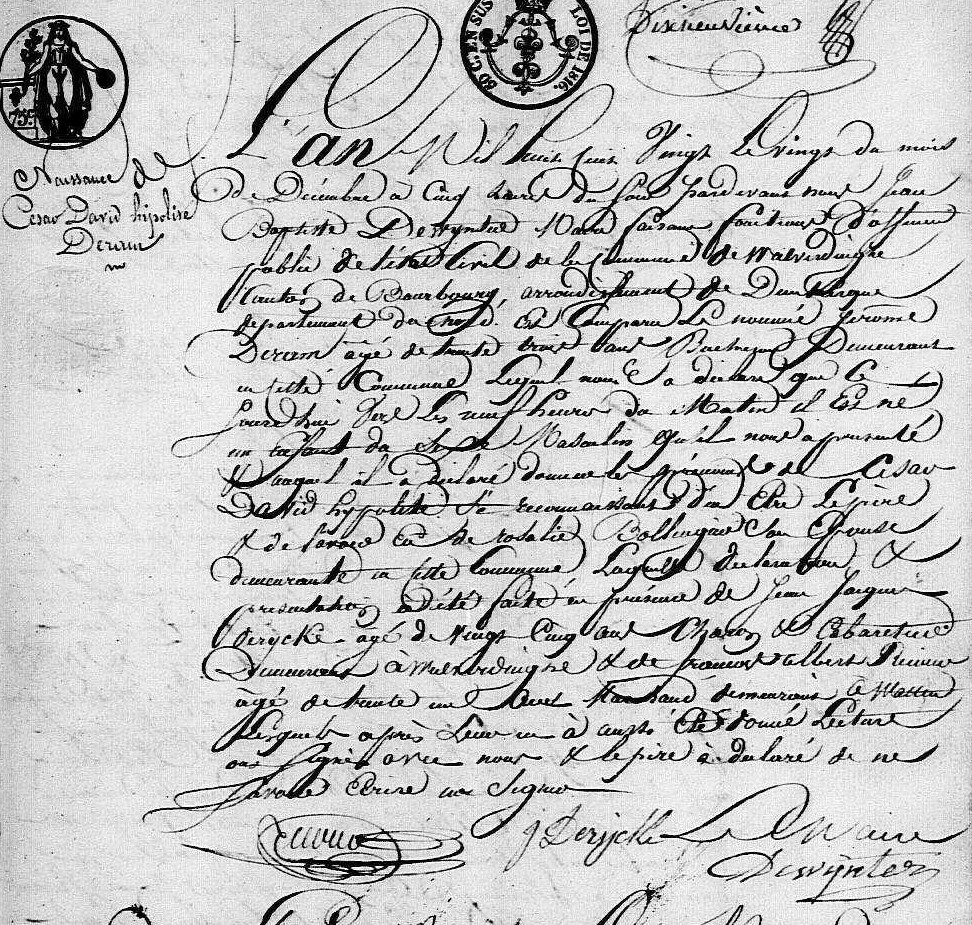 80 C. EN SUS LOI DE 1816.
Dixneuvieme
Naissance de
Cesar David hipolite
Deram
L'an Mil huit Cent Vingt le vingt du mois
de Décembre à Cinq heures du Soir pardevant nous Jean
Baptiste Deswynter Maire faisant fonctions d'officier
public de l'état Civil de la Commune de Wulverdinghe
Canton de Bourbourg, arrondissement de Dunkerque
departement du nord. Est Comparu Le nommé Jerome
Deram âgé de trente trois ans Demeurant
en cette Commune Lequel nous a déclaré que Ce
jourdhui vers Les neuf heures du Matin il Est né
un Enfant du Sexe Masculin qu'il nous a presenté
& auquel il a déclaré donner les prénoms de Cesar
David hypolite Se reconnaissant d'en Etre Le père
& de l'avoir Eu de rosalie Bollengier Son Epouse
demeurante en cette Commune Laquelle déclaration &
presentation a été faite en présence de Jean Jacques
Derycke agé de Vingt Cinq ans Charon & Cabaretier
Demeurant à Wulverdinghe & de francois albert
âgé de trente un ans Marchand demeurant à Watten
Lesquels après Leur en à aussi Eté donné Lecture
ont Signé avec nous & le pere à déclaré de ne
Savoir Ecrire ni Signer
J Derycke Le Maire
Deswynter